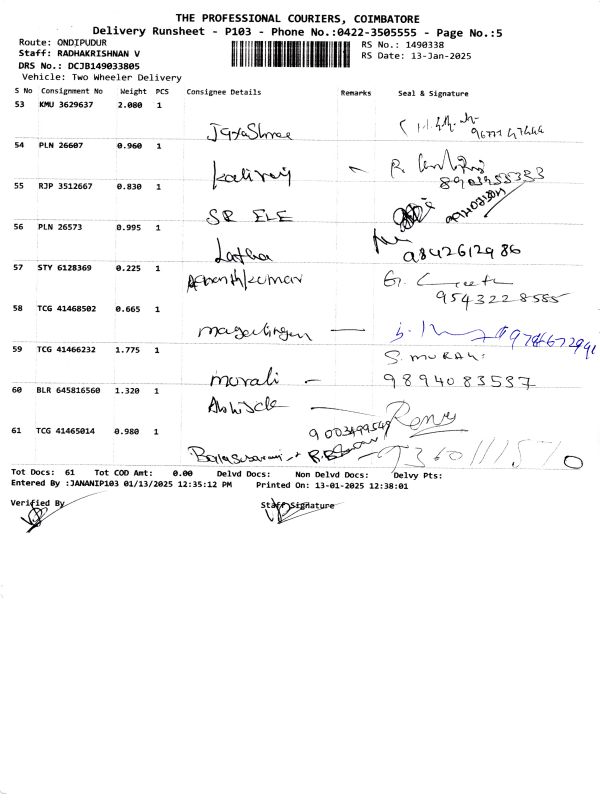 THE PROFESSIONAL COURIERS, COIMBATORE
Delivery Runsheet - P103 - Phone No.:0422-3505555 - Page No.:5
Route: ONDIPUDUR
RS No.: 1490338
Staff: RADHAKRISHNAN V
RS Date: 13-Jan-2025
DRS No.: DCJB149033805
Vehicle: Two Wheeler Delivery
S No Consignment No Weight PCS Consignee Details Remarks Seal & Signature
53 KMU 3629637 2.080 1
JayaShree
54 PLN 26607 0.960 1
Kaliraj
8903955383
55 RJP 3512667 0.830 1
SR ELE
56 PLN 26573 0.995 1
Latha 9842612986
57 STY 6128369 0.225 1
G. Geetha
9543228585
58 TCG 41468502 0.665 1
59 TCG 41466232 1.775 1
S. MURALI
murali - 9894083537
60 BLR 645816560 1.320 1
61 TCG 41465014 0.980 1
9003499549
Tot Docs: 61 Tot COD Amt: 0.00 Delvd Docs: Non Delvd Docs: Delvy Pts:
Entered By :JANANIP103 01/13/2025 12:35:12 PM Printed On: 13-01-2025 12:38:01
Verified By Staff Signature